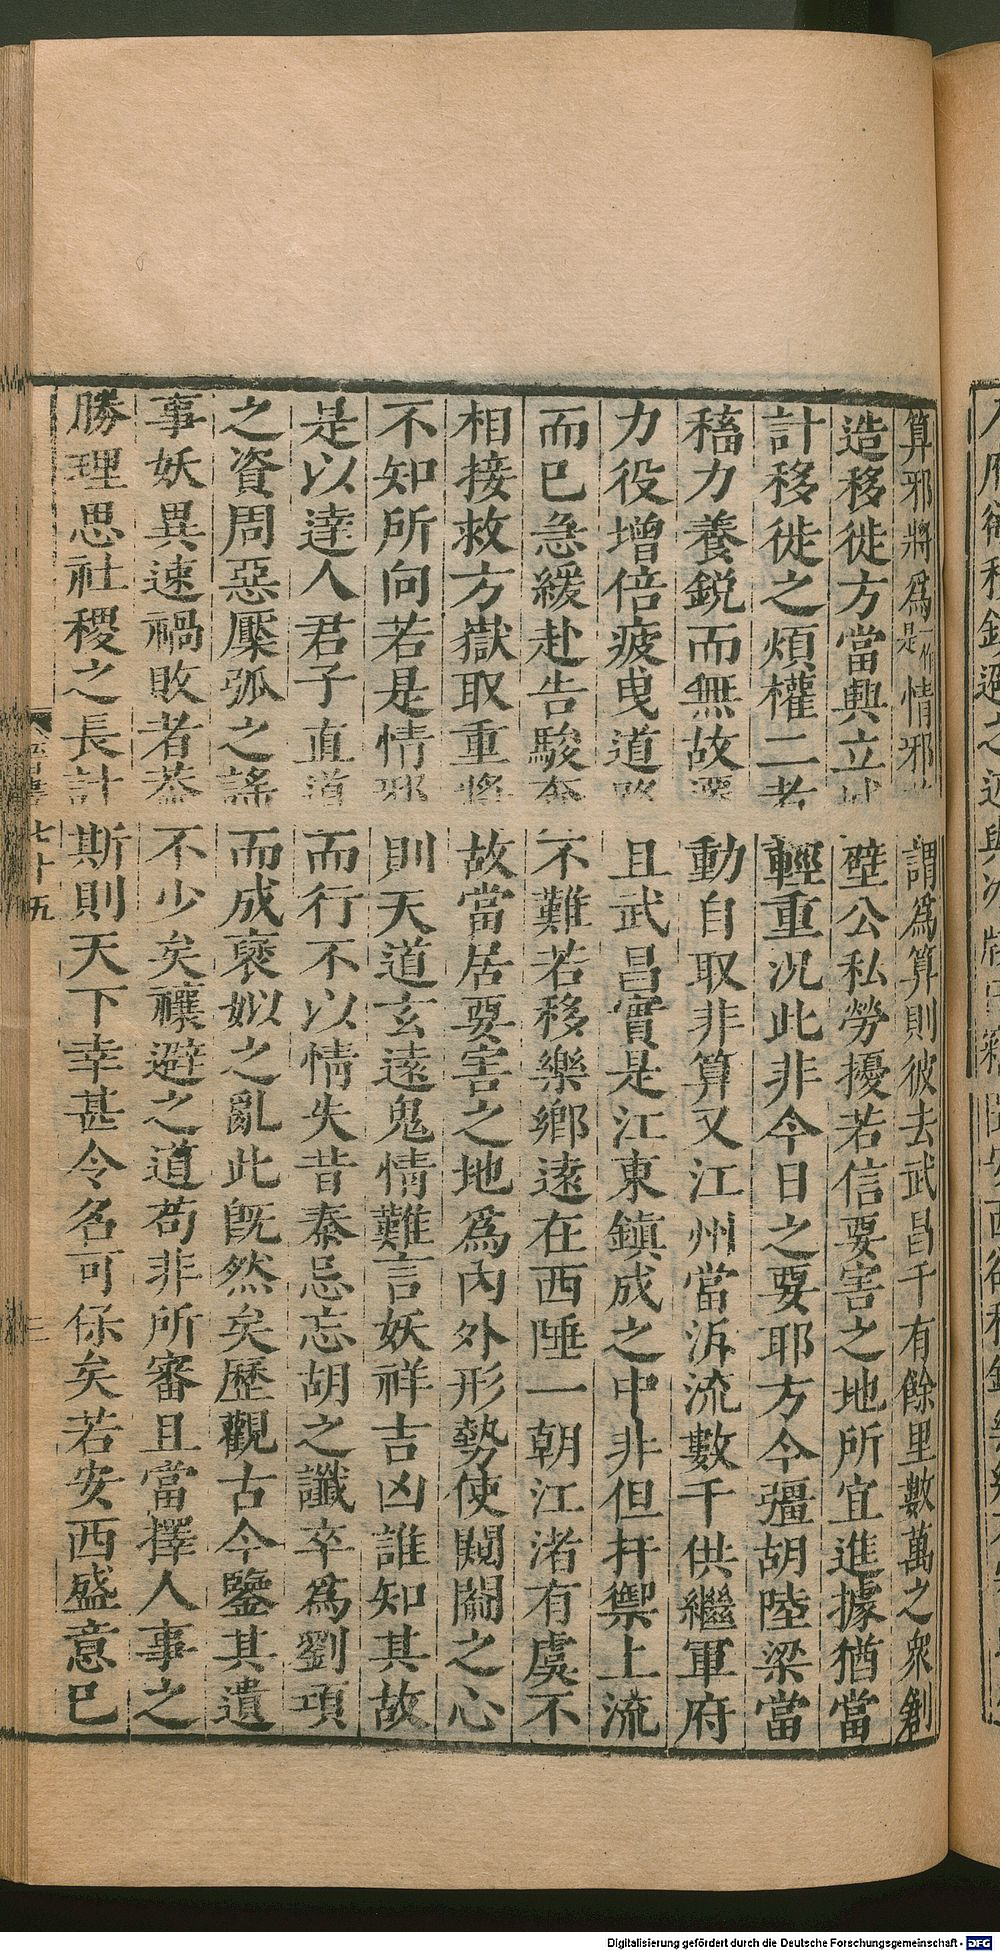 算邪將爲是一作情邪謂爲算則彼去武昌千有餘里數萬之衆創
造移徙方當興立城壁公私勞擾若信要害之地所宜進據猶當
計移徙之煩權二者輕重況此非今日之要耶方今彊胡陸梁當
稸力養鋭而無故遷動自取非算又江州當泝流數千供繼軍府
力役增倍疲曳道路且武昌實是江東鎮戍之中非但扞禦上流
而已急緩赴告駿奔不難若移樂鄉遠在西陲一朝江渚有虞不
相接救方嶽取重將故當居要害之地爲內外形勢使闚𨵦之心
不知所向若是情邪則天道玄遠鬼情難言妖祥吉凶誰知其故
是以達人君子直道而行不以情失昔秦忌忘胡之讖卒爲劉項
之資周惡檿弧之謠而成褒姒之亂此旣然矣歷觀古今鑒其遺
事妖異速禍敗者葢不少矣禳避之道苟非所審且當擇人事之
勝理思社稷之長計斯則天下幸甚令名可保矣若安西盛意巳
七十五
三
Digitalisierung gefördert durch die Deutsche Forschungsgemeinschaft - DFG